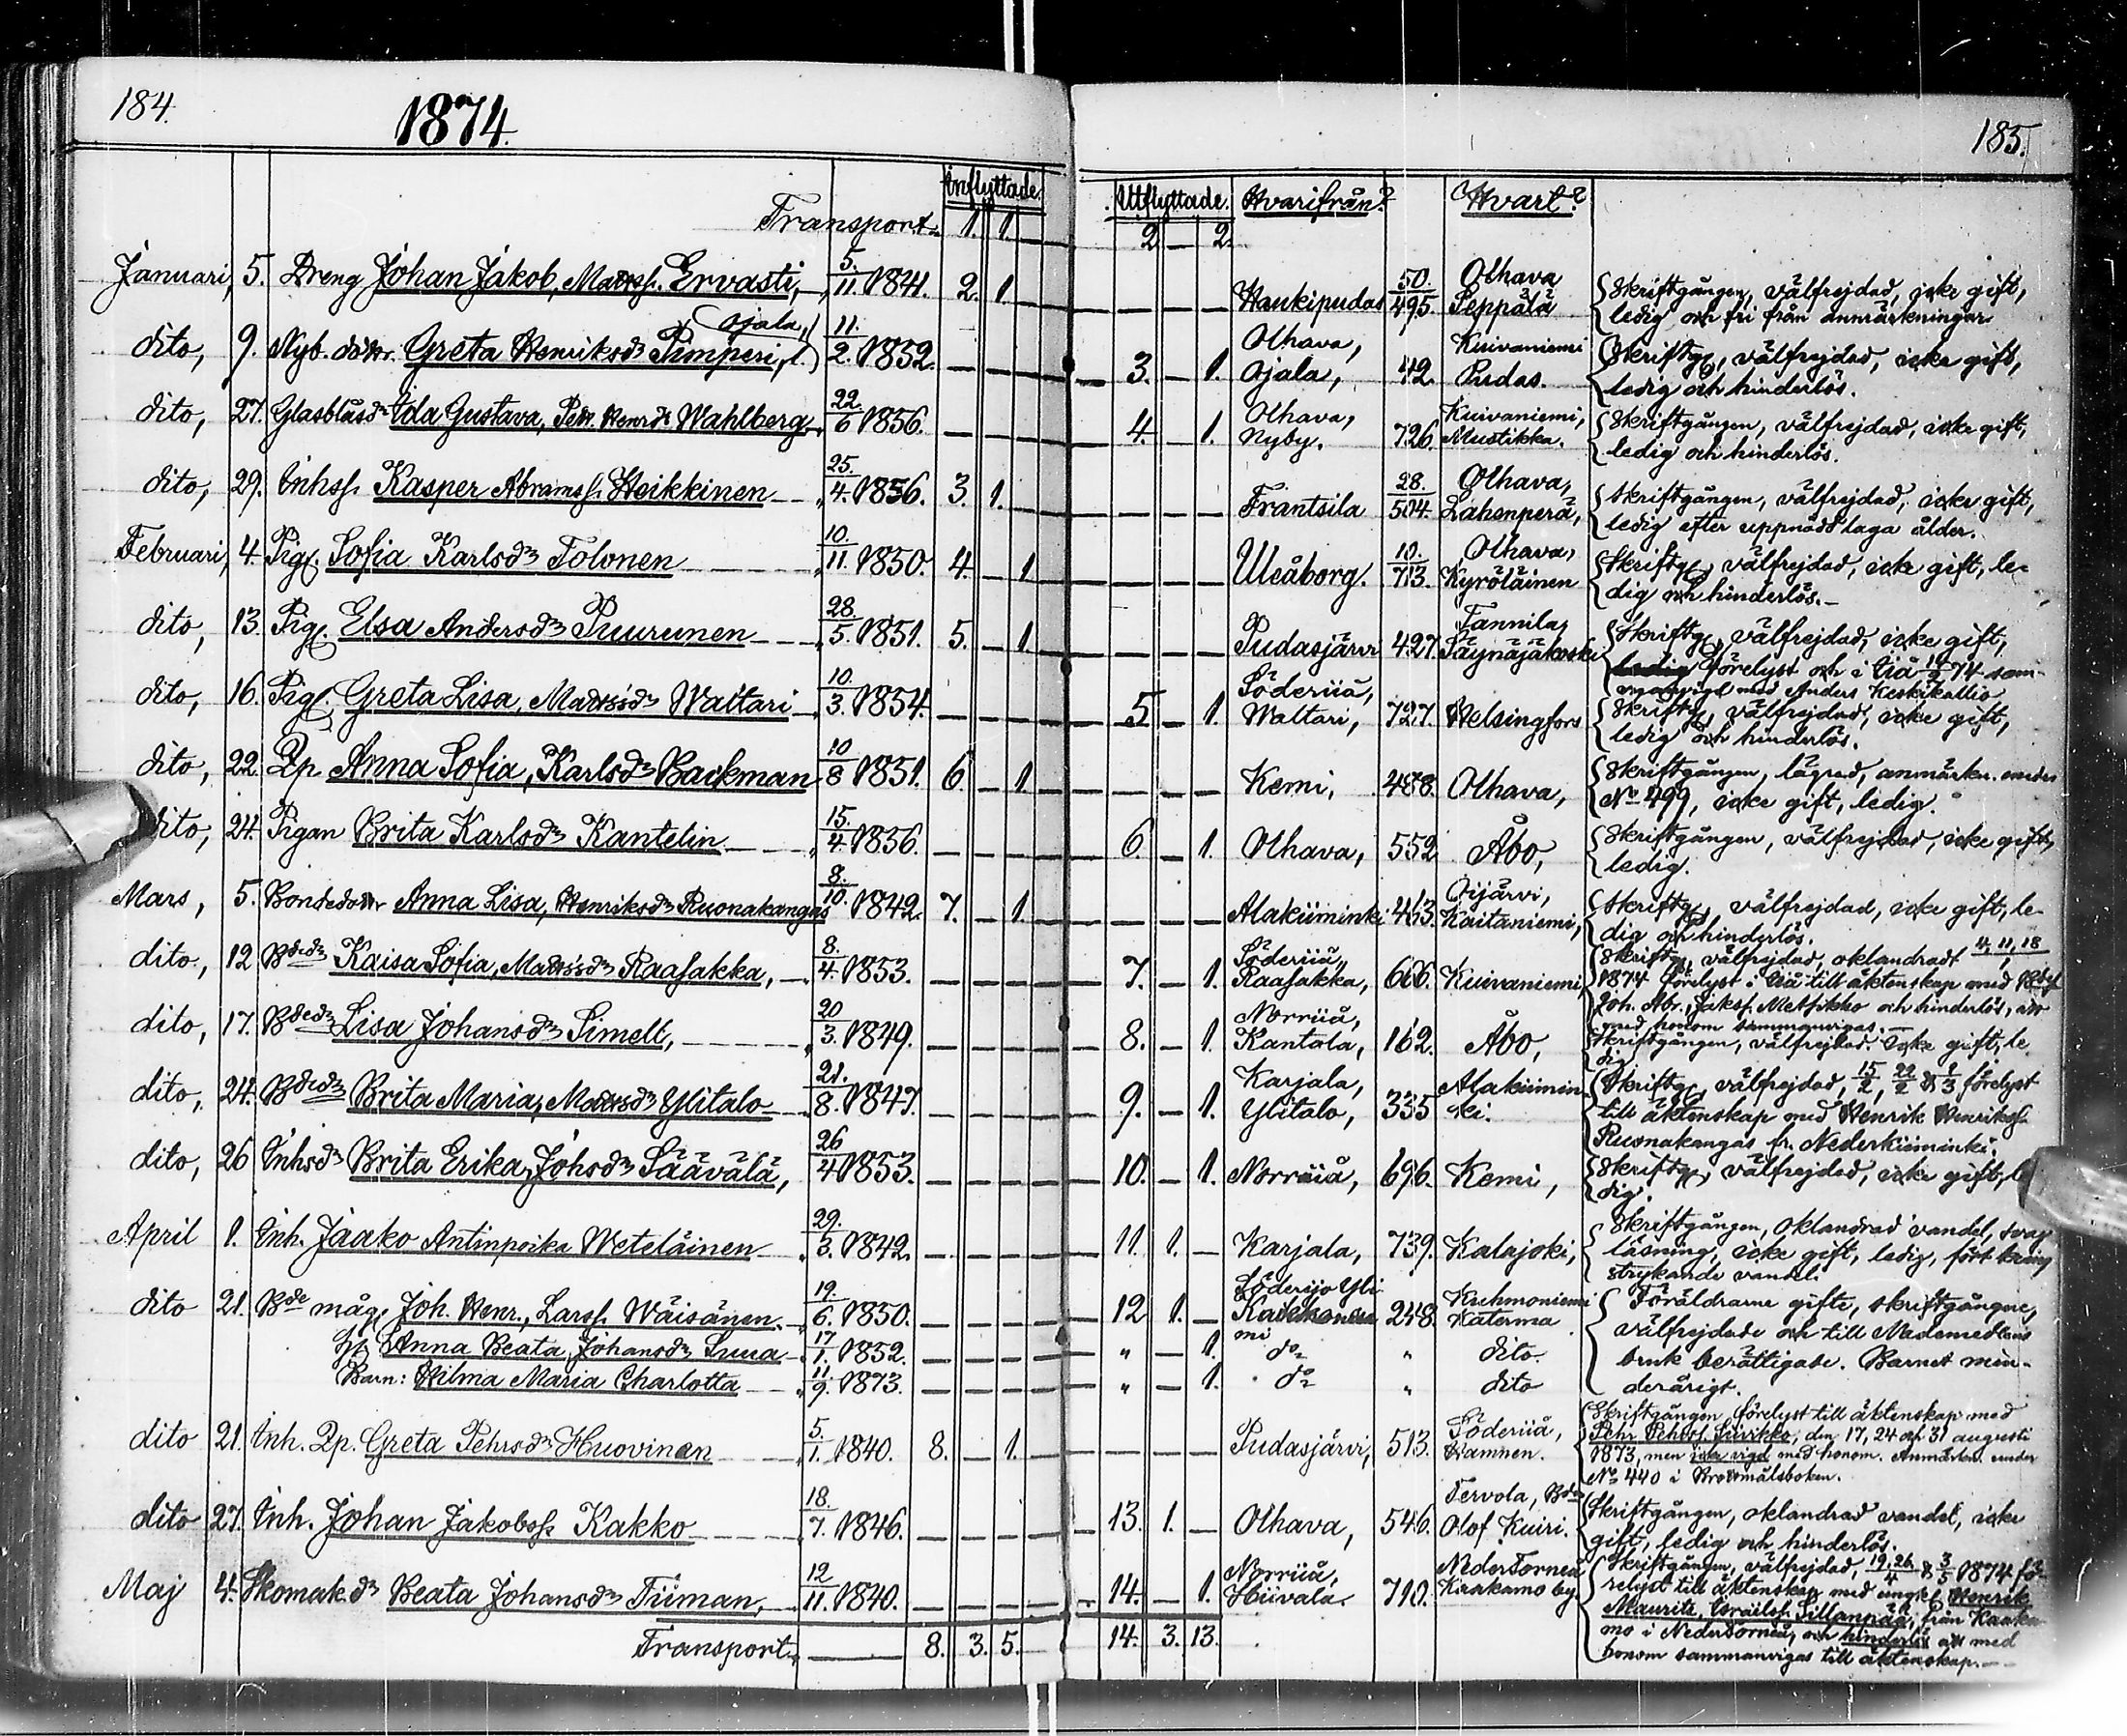 184.
1874.
185.
Inflyttade.
Utflyttade. Hvarifrån? Hvart?
Transport 1. 1. — 2. — 2.
Januari, 5. Dreng Johan Jakob, Mattss. Ervasti, 5./11. 1841. 2. 1. — — — — Haukipudas 50./495. Olhava Seppälä
Skriftgången, välfrejdad, icke gift,
ledig och fri från anmärkningar.
Ojala,
dito, 9. Nyb. dottr. Greta Henriksdr Pimperi, 11./2. 1852. — — — 3. — 1. Olhava, Ojala, 42. Kuivaniemi Pudas.
Skriftg., välfrejdad, icke gift,
ledig och hinderlös.
dito, 27. Glasblåsdr Ida Gustava, Wahlberg 22./6 1856. — — — 4. — 1. Olhava, Nyby. 726. Kuivaniemi, Mustikka.
Skriftgången, välfrejdad, icke gift,
ledig och hinderlös.
dito, 29. Inhss. Kasper Abramss. Heikkinen 25./4. 1856. 3. 1. — — — — Frantsila 28./504. Olhava, Lahenperä,
Skriftgången, välfrejdad, icke gift,
ledig efter uppnådd laga ålder.
Februari, 4. Pig. Sofia Karlsdr Tolonen 10./11. 1850. 4. — 1 — — — Uleåborg. 10./713. Olhava, Kyröläinen
Skriftg., välfrejdad, icke gift, le-
dig och hinderlös.
dito, 13. Pig. Elsa Andersdr Puurunen 28./5. 1851. 5. — 1 — — — Pudasjärvi 427. Tannila, Säynäjäkoski
Skriftg., välfrejdad, icke gift,
ledig förelyst och i Iiå 74 sam-
manvigd med Anders Keskikallio
dito, 16. Pig. Greta Lisa, Mattsdr Waltari 10./3. 1854. — — — 5 — 1. Söderiiå, Waltari, 727. Helsingfors
Skriftg., välfrejdad, icke gift,
ledig och hinderlös.
dito, 22. Qp. Anna Sofia, Karlsdr Backman 10/8 1851. 6 — 1. — — — Kemi, 488. Olhava,
Skriftgången, lägrad, anmärkn. under
No 499, icke gift, ledig.
dito, 24. Pigan Brita Karlsdr Kantelin 15./4. 1856. — — — 6. — 1. Olhava, 552 Åbo,
Skriftgången, välfrejdad, icke gift,
ledig.
Mars, 5. Bondedottr Anna Lisa, Henriksdr Ruonakangas 8./10. 1842. 7. — 1. — — — Alakiiminki 463. Oijärvi, Kaitaniemi,
Skriftg., välfrejdad, icke gift, le-
dig och hinderlös.
dito, 12 Bdedr Kaisa Sofia, Mattsdr Raasakka, 8./4. 1853. — — — 7. — 1. Söderiiå, Raasakka, 606. Kuivaniemi,
Skriftg., välfrejdad, oklandradt 4, 11, 18
1874 förelyst i Iiå till äktenskap med
Joh. Abr. Jakss. Metsikko och hinderlös, att
med honom sammanvigas.
dito, 17. Bdedr Lisa Johansdr Simelt, 20/3. 1849. — — — 8. — 1. Norriiå, Kantola, 162. Åbo,
Skriftgången, välfrejdad. Icke gift, le
dig
dito, 24. Bdedr Brita Maria, Mattsdr Ylitalo 21./8. 1847. — — — 9. — 1. Karjala, Ylitalo, 335 Alakiimin ki.
Skriftg., välfrejdad, 15/2, 22/2 & 1/3 förelyst
till äktenskap med Henrik Henrikss.
Ruonakangas fr. Nederkiiminki.
dito, 26 Inhsdr Brita Erika, Johsdr Säävälä, 26/4 1853. — — — 10. — 1. Norriiå, 696. Kemi,
Skriftg., välfrejdad, icke gift, le
dig.
April 1. Inh. Jaako Antinpoika Weteläinen 29./3. 1842. — — — 11. 1. — Karjala, 739. Kalajoki,
Skriftgången, oklandrad vandel, svag
läsning, icke gift, ledig, fört kring
strykande vandel.
dito 21. Bde måg, Joh. Henr., Larss. Wäisänen. 19./6. 1850. — — — 12 1. — 248. Kuhmoniemi Katerma
Anna Beata Johansdr Suua 17/1. 1852. — — — " — 1. do " dito.
Barn: Hilma Maria Charlotta 11./9. 1873. — — — " — 1. do " dito
Föräldrarne gifte, skriftgångne,
välfrejdade och till Nådemedlens
bruk berättigade. Barnet min-
derårigt.
dito 21. Inh. Qp. Greta Pehrsdr Huovinen 5./1. 1840. 8. — 1. — — — Pudasjärvi, 513. Söderiiå, Hamnen.
Skriftgången förelyst till äktenskap med
Pehr Pehrss. Siirikko, den 17, 24 och 31 augusti
1873, men icke vigd med honom. Anmärkn. under
No 440 i Brottmålsboken.
dito 27. Inh. Johan Jakobss. Kakko 18./7. 1846. — — — 13. 1. — Olhava, 546. Tervola, Olof Kuiri.
Skriftgången, oklandrad vandel, icke
gift, ledig och hinderlös.
Maj 4. Skomak.dr Beata Johansdr Tiiman, 12/11. 1840. — — — 14. — 1. Norriiå, Hiivala. 710. NederTorneå Kaakamo by.
Skriftgången, välfrejdad, 19, 26/4 & 3/5 1874 fö-
relyst till äktenskap med ungk. Henrik
Maurits, Israelss. Sillanpää, från Kaaka
mo i NederTorneå, och hinderlös att med
honom sammanvigas till äktenskap.
Transport 8. 3. 5. 14. 3. 13.